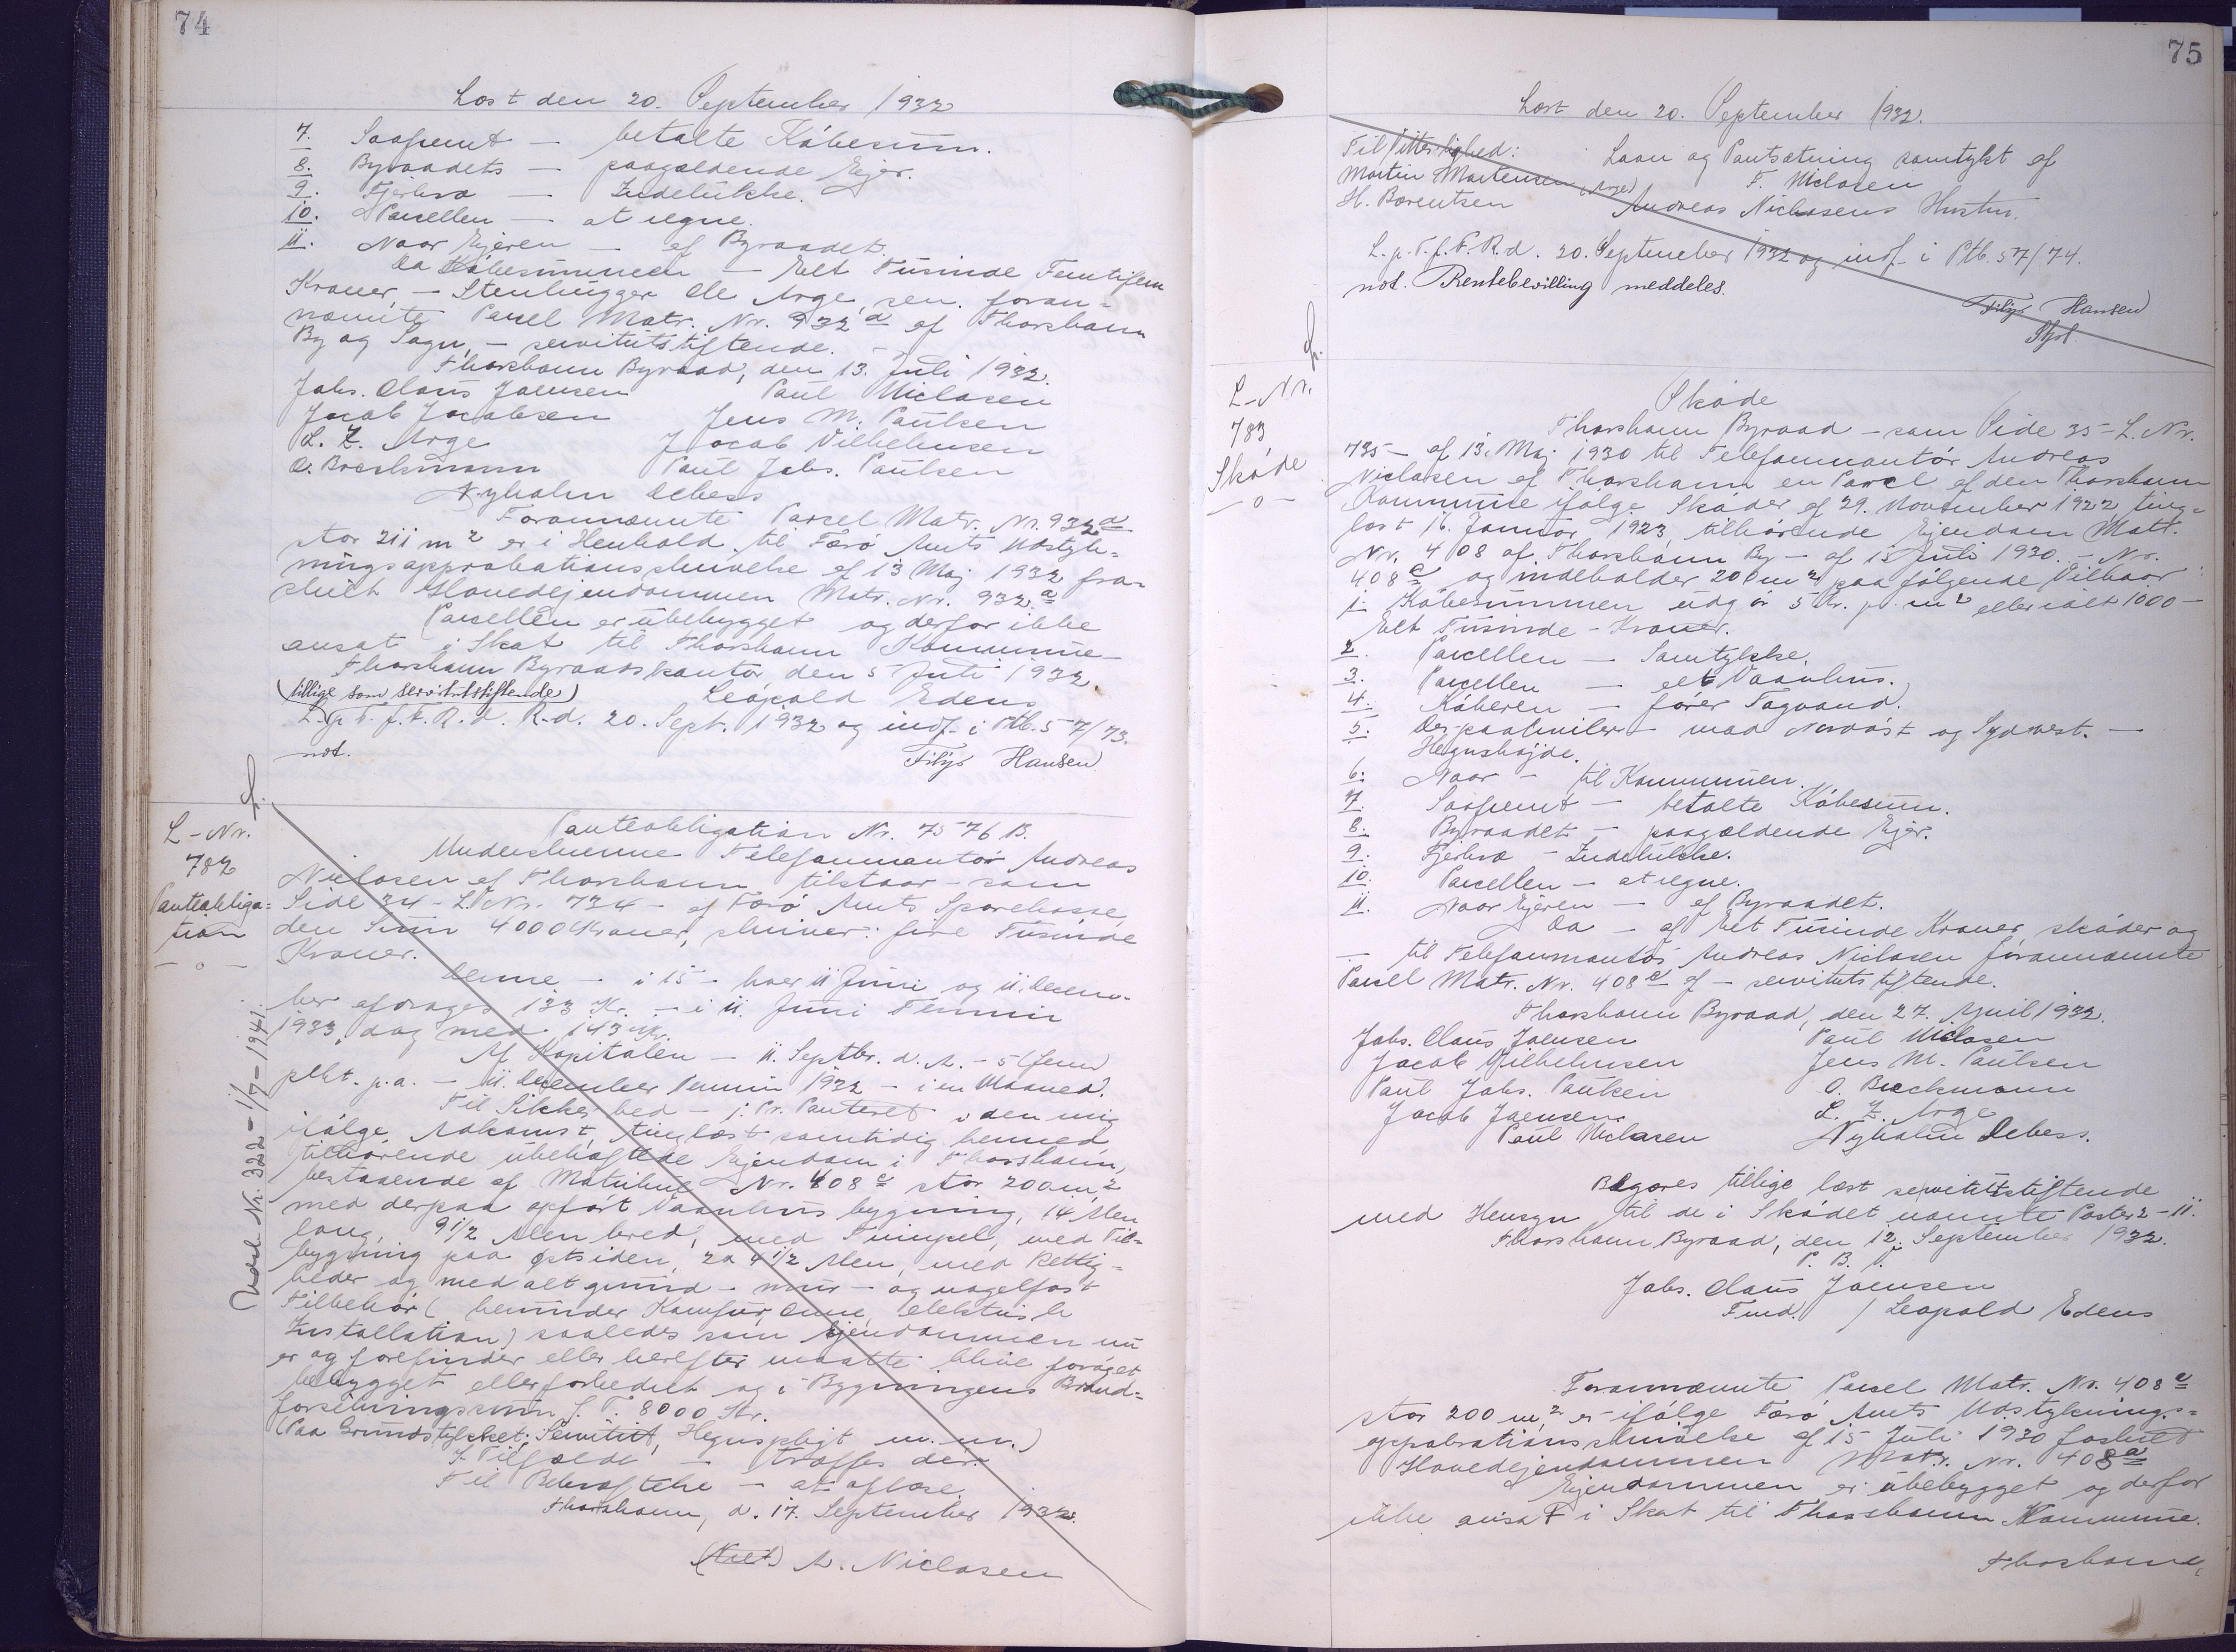 74
Læst den 20. September 1932
7. Saafremt - betalte Købesum.
8. Byraadets - paagældende Ejer.
9. Fjerkræ - Indelukke.
10. Parcellen - at regne.
11. Naar Ejeren - af Byraadet.
Da Købesummen - Eet Tusinde Femtifem
Kroner, - Stenhugger Ole Arge, sen. foran=
nævnte Parcel Matr. Nr. 932 d af Thorshavn
By og Sogn, - servitutstiftende. -
Thorshavn Byraad, den 13. Juli 1932.
Johs. Claus Joensen Paul Niclasen
Jacob Jacobsen Jens M. Paulsen
L. Z. Arge Jacob Vilhelmsen
O. Breckmann Paul Johs. Paulsen
Nyholm Debess
Forannævnte Parcel Matr. Nr. 932 d
stor 211 m² er i Henhold til Færø Amts Udstyk=
ningsapprobationsskrivelse af 13 Maj 1932 fra=
skilt Hovedejendommen Matr. Nr. 932 a
Parcellen er ubebygget og derfor ikke
ansat i Skat til Thorshavn Kommune -
Thorshavn Byraadskontor, den 5 Juli 1932.
(tillige som servitutstiftende) Leopold Edens
L. p. T. f. F. R. d. R. d. 20. Sept. 1932 og indf. i Ptb. 57/73.
not. Filip Hansen
L-Nr.
782
Panteobliga=
tion
- o -
Udsl. Nr. 322 - 1/7 - 1941.
Panteobligation Nr. 7576 B.
Underskrevne Telefonmontør Andreas
Niclasen af Thorshavn tilstaar - som
Side 34 - L. Nr. 734 - af Færø Amts Sparekasse,
den Sum 4000 Kroner, skriver: fire Tusinde
Kroner.
Denne - i 15 - hver 11 Juni og 11. Decem=
ber afdrages 133 Kr. - i 11. Juni Termin
1933, dog med 143 Kr.
Af Kapitalen - 11. Septbr. d. A. - 5 (fem)
pCt. p.a. - 11. December Termin 1932 - i en Maaned.
Til Sikkerhed - j: Pr. Panteret i den mig
ifølge Adkomst, tinglæst samtidig hermed
tilhørende ubehæftede Ejendom i Thorshavn,
bestaaende af Matrikul Nr. 408 e stor 200 m²
med derpaa opført Vaanhus bygning, 14 Alen
lang, 9 1/2 Alen bred, med Tilbygning, med Til=
bygning paa Østsiden, 2 x 4 1/2 Alen, med Rettig=
heder og med alt grund - mur - og nagelfast
Tilbehør (herunder Komfur, Ovne, elektrisk
Installation) saaledes som Ejendommen nu
er og forefinder eller herefter maatte blive forøget
bebygget eller forbedret og i Bygningens Brand=
forsikringssum f. T. 8000 Kr.
(Paa Grundstykket: Servitut, Hegnspligt m.m.)
I Tilfælde - træffes der.
Til Bekræftelse - at aflæse.
Thorshavn, d. 17. September 1932.
A. Niclasen
75
Læst den 20. September 1932.
Til Vitterlighed: Laan og Pantsætning samtykt af
Martin Mortensen (Arge) F. Niclasen
H. Barentsen Andreas Niclasens Hustru.
L. p. T. f. F. R. d. 20. September 1932 og indf. i Ptb. 57/74.
not. Rentebevilling meddeles.
Filip Hansen
L-Nr.
783
Skøde
- o -
Skøde
Thorshavn Byraad - som Side 35 - L. Nr.
735 - af 13. Maj 1930 til Telefonmontør Andreas
Niclasen af Thorshavn en Parcel af den Thorshavn
Kommune ifølge Skøder af 29. November 1922, ting=
læst 16. Januar 1923, tilhørende Ejendom Matr.
Nr. 408 af Thorshavn By - af 15 Juli 1930. - Nr.
408 e og indeholder 200 m² paa følgende Vilkaar:
1. Købesummen udgør 5 Kr. pr. m² eller ialt 1000 -
Eet Tusinde - Kroner.
2. Parcellen - Samtykke.
3. Parcellen - eet Vaanhus.
4. Køberen - fører Tagvand.
5. Der paahviler - mod Nordøst og Sydvest. -
Hegnshøjde.
6. Naar - til Kommunen.
7. Saafremt - betalte Købesum.
8. Byraadet - paagældende Ejer.
9. Fjerkræ - Indelukke.
10. Parcellen - at regne.
11. Naar Ejeren - af Byraadet.
Da - af Eet Tusinde Kroner skøder og
- til Telefonmontør Andreas Niclasen forannævnte
Parcel Matr. Nr. 408 e af - servitutstiftende.
Thorshavn Byraad, den 27. April 1932.
Johs. Claus Joensen Paul Niclasen
Jacob Vilhelmsen Jens M. Paulsen
Paul Johs. Paulsen O. Breckmann
Jacob Joensen L. Z. Arge
Paul Niclasen Nyholm Debess.
Begæres tillige læst servitutstiftende
med Hensyn til de i Skødet nævnte Poster 2 - 11.
Thorshavn Byraad, den 12. September 1932.
P. B. V.
Johs. Claus Joensen
Fmd. / Leopold Edens
Forannævnte Parcel Matr. Nr. 408 e
stor 200 m², er ifølge Færø Amts Udstyknings=
approbationsskrivelse af 15 Juli 1930 fraskilt
Hovedejendommen Matr. Nr. 408 a
Ejendommen er ubebygget og derfor
ikke ansat i Skat til Thorshavn Kommune.
Thorshavn,